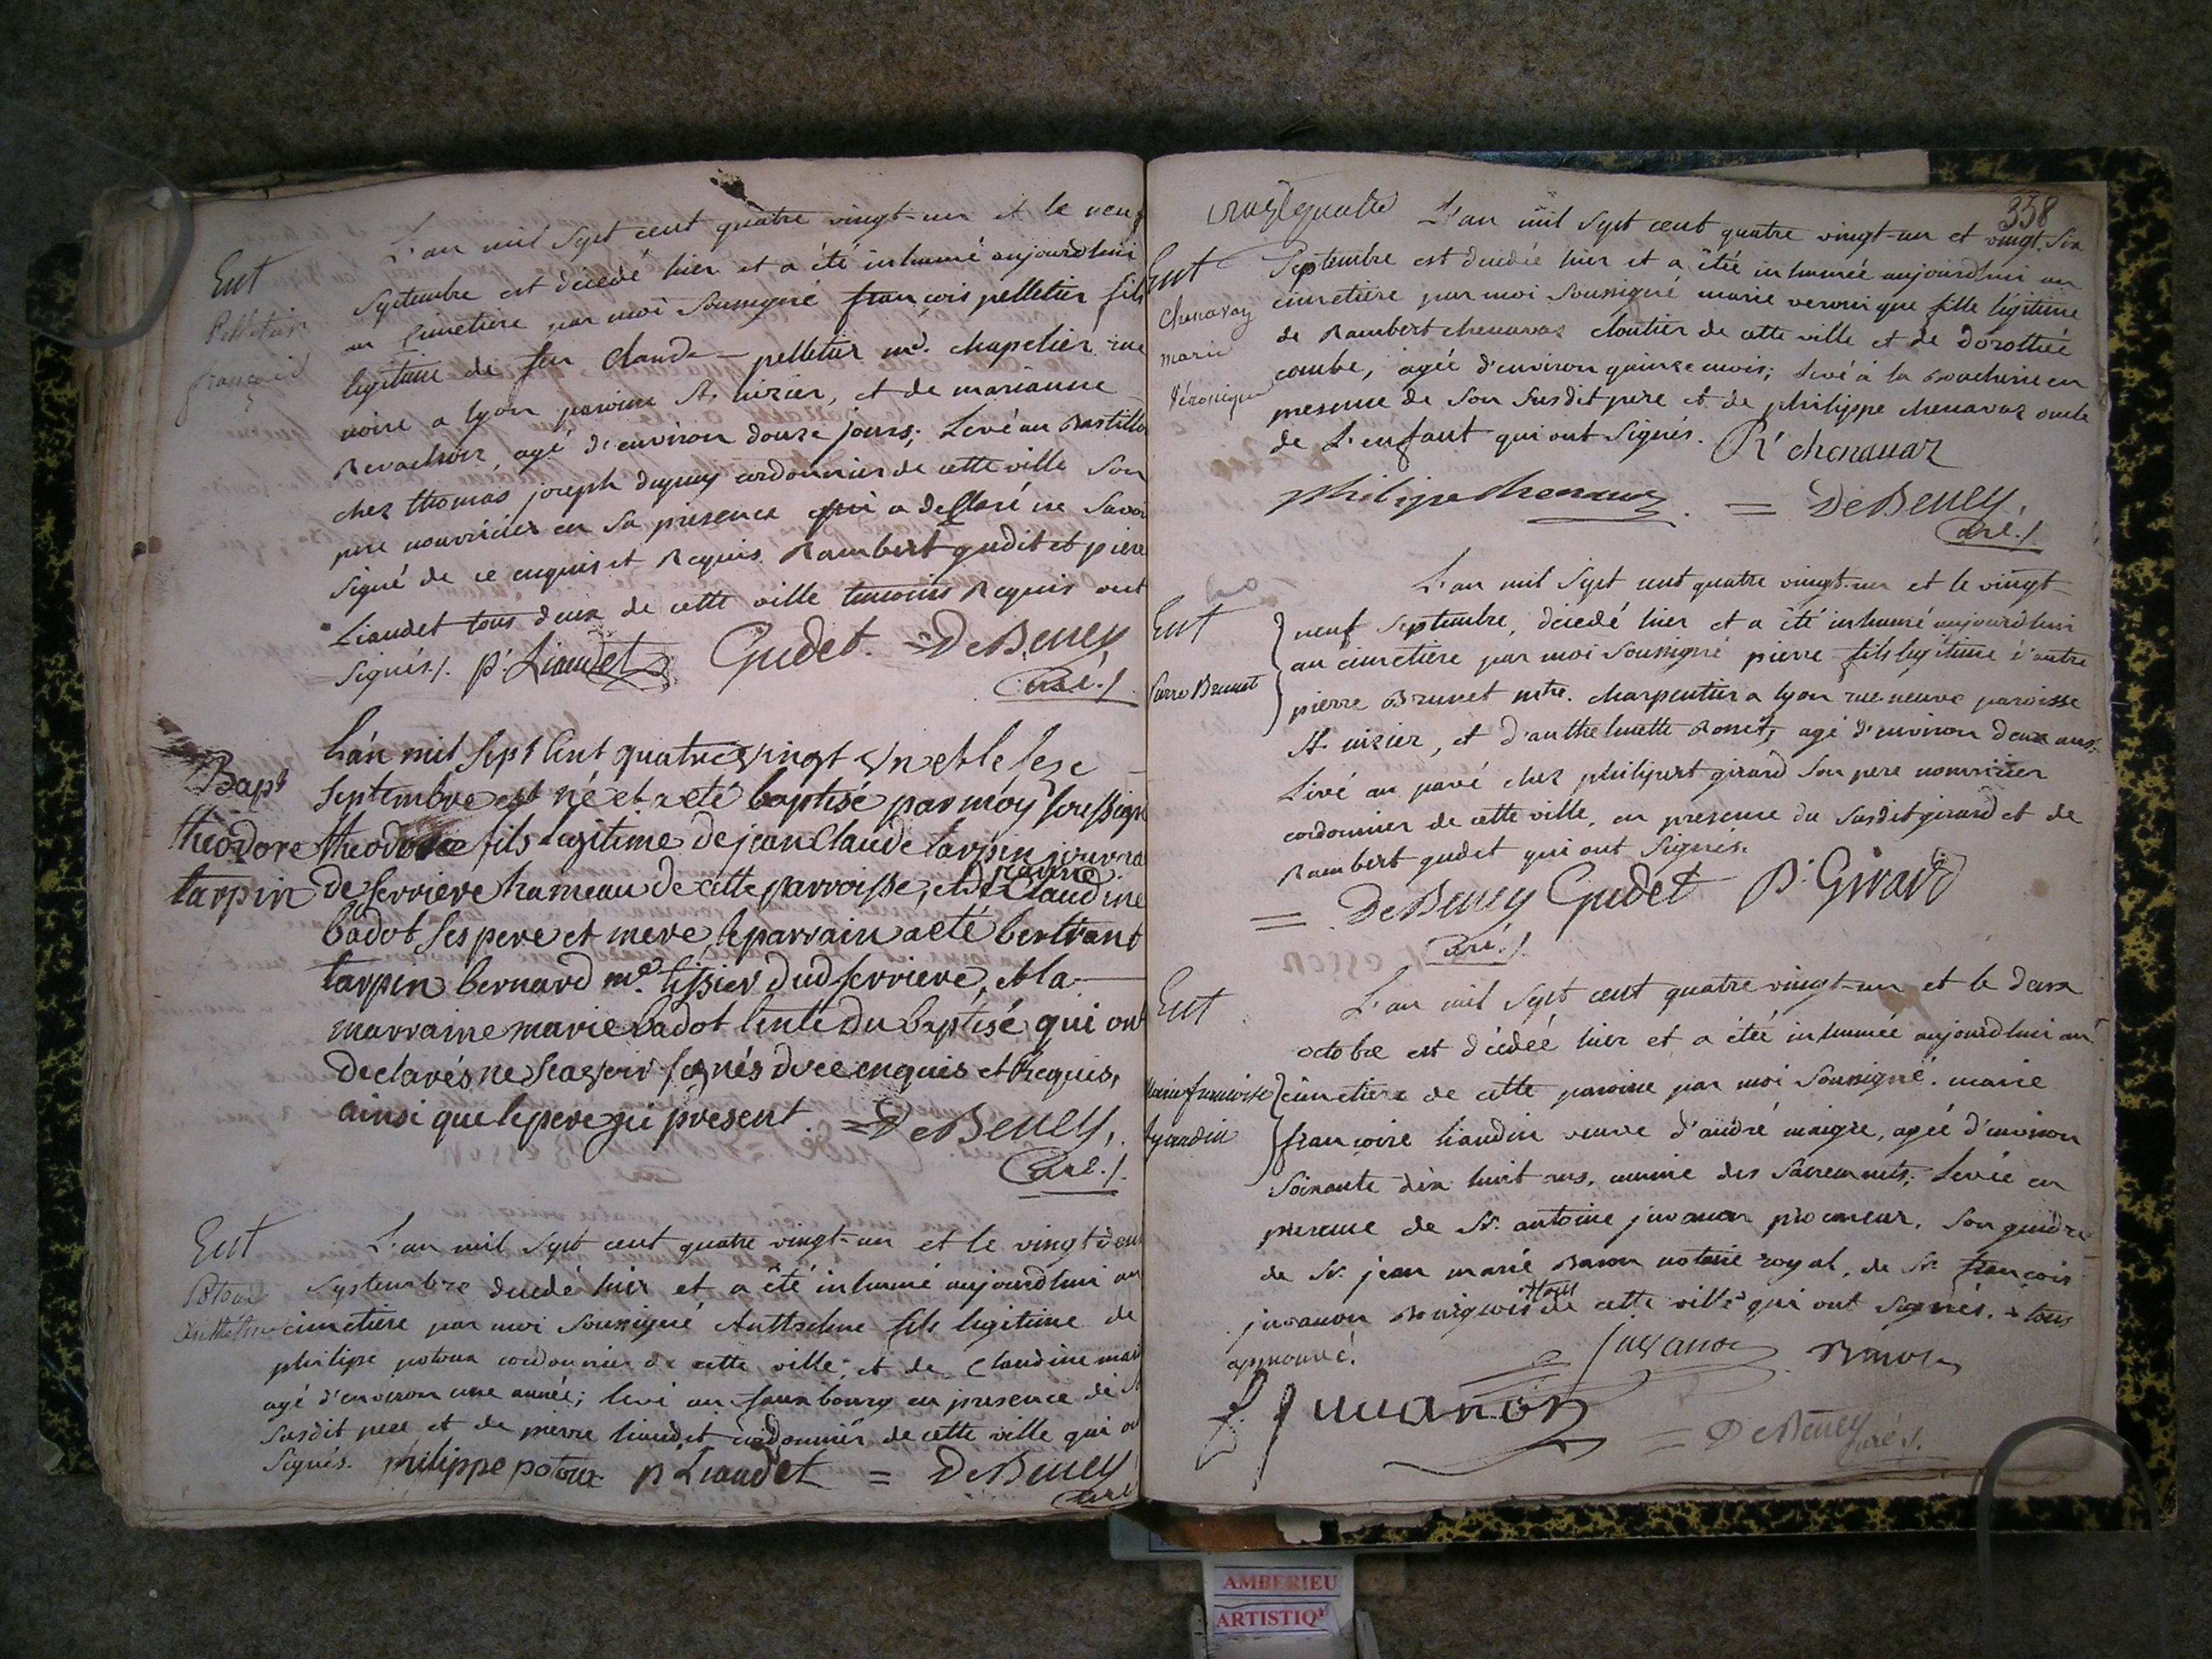 Ent
Pelletier
françois
L'an mil Sept cent quatre vingt-un et le neuf
Septembre est décédé hier et a été inhumé aujourdhui
au Cimetiere par moi Soussigné françois pelletier fils
légitime de feu Claude pelletier md. chapelier rue
noire a lyon paroisse St. nizier, et de marianne
agé d'environ douze jours; Levé au
chez thomas joseph dupuy cordonnier de cette ville Son
pere nourricier en Sa présence qui a declaré ne Savoir
Signé de ce enquis et Requis. Rambert gudit et piere
Liaudet tous deux de cette ville temoins Requis ont
Signés./. pr Liaudet Gudet. = DeBeney
Curé./.
Bapt
theodore
tarpin
L'an mil Sept Cent quatre vingt un et le Seze
Septembre est né et a eté baptisé par moy Soussigné
theodore fils legitime de jean Claude tarpin
de Serriere hameau de cette parroisse, et de Claudine
badot Ses pere et mere, le parrain a eté bertrand
tarpin bernard me. tissier dud Serriere, et la
marraine marie badot tente du baptisé qui ont
declarés ne Scavoir Signés de ce enquis et Requis,
ainsi que le pere ici present. = DeBeney,
Curé./.
Ent
Potoux
Anthelme
L'an mil Sept cent quatre vingt-un et le vingt deux
Septembre decedé hier et a été inhumé aujourdhui au
cimetiere par moi Soussigné Anthelme fils légitime de
philipe potoux cordonnier de cette ville, et de Claudine
agé d'environ une année; levé au fauxbourg en presence de
Susdit pere et de pierre liaudet cordonnier de cette ville qui ont
Signés. philippe potoux p Liaudet = DeBeney
Curé
338
Ent
Chenavaz
marie
Véronique
L'an mil Sept cent quatre vingt-un et vingt Six
Septembre est decedée hier et a étée inhumée aujourdhui au
cimetiere par moi Soussigné marie veronique fille légitime
de Rambert chenavas cloutier de cette ville et de dorothée
combe, agée d'environ quinze mois; levé à la Boucherie en
presence de Son Susdit pere et de philippe chenavaz oncle
de L'enfant qui ont Signés. Rt chenavaz
philipe chenavaz = DeBeney,
Curé./.
Ent
Pierre Brunet
L'an mil Sept cent quatre vingt-un et le vingt
neuf Septembre, décedé hier et a été inhumé aujourdhui
au cimetiere par moi Soussigné pierre fils legitime d'autre
pierre Brunet mtre. charpentier a lyon rue neuve paroisse
St. nizier, et d'anthelmette agé d'environ deux ans.
Levé au pavé chez philipert girard Son pere nourricier
cordonnier de cette ville, en presence du Susdit girard et de
Rambert gudet qui ont Signés.
= DeBeney Gudet P. Girard
Curé./.
Ent
Marie francoise
Lyaudin
L'an mil Sept cent quatre vingt-un et le deux
octobre est décédéé hier et a étée inhumée aujourdhui au
cimetiere de cette paroisse par moi Soussigné. marie
françoise liaudin veuve d'andré maigre, agée d'environ
Soixante dix huit ans, munie des Sacrements, Levée en
presence de Sr. antoine juvanon procureur, Son gendre
de Sr. jean marie Baron notaire royal, de Sr. françois
juvanon Bourgeois tous de cette ville qui ont Signés. + tous
approuvé.
Juvanon Baron
f. juvanon
= DeBeney
Curé./.
AMBERIEU
ARTISTIQ